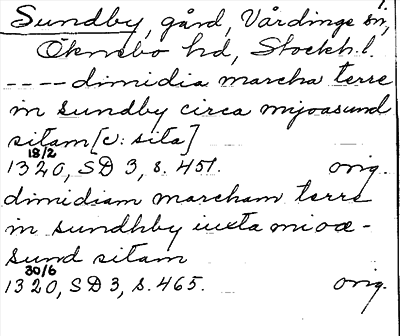 1.
Sundby, gård, Vårdinge sn,
Öknebo hd, Stockh.l.
---- dimidia marcha terre
in sundby circa mijoasund
sitam [c: sita]
18/2
1320, SD 3, s. 451. orig.
dimidiam marcham terre
in sundhby iuxta mioæ-
sund sitam
30/6
1320, SD 3, s. 465. orig.